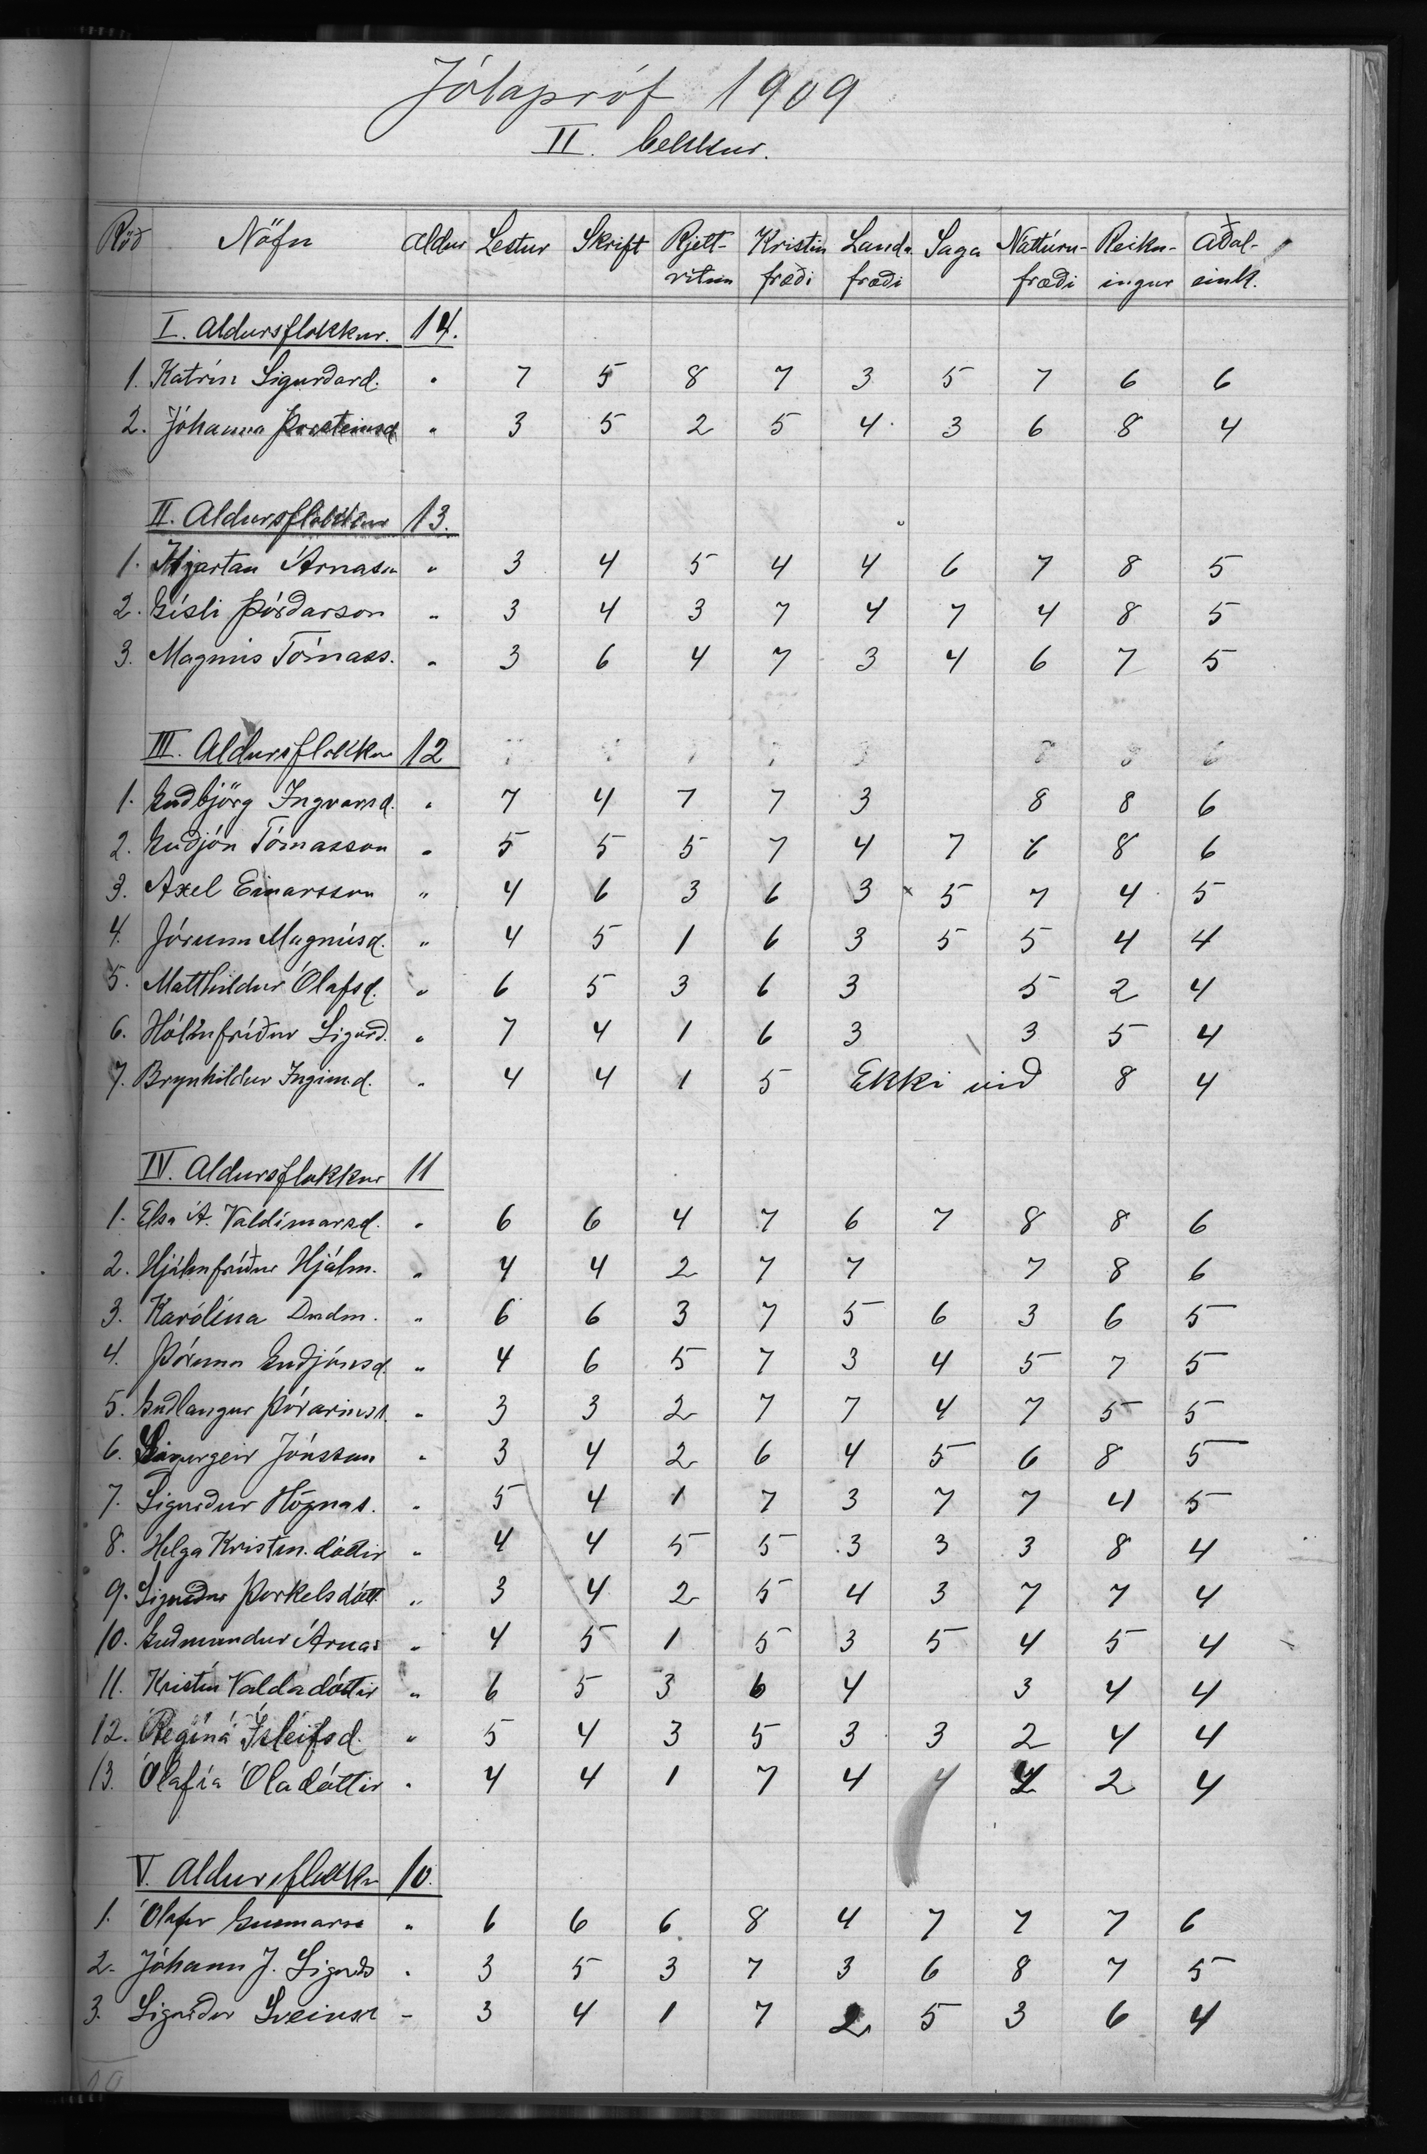 Jólapróf 1909
II. bekkur.
Röð Nöfn Aldur Lestur Skrift Rjett-ritun Kristin fræði Landa fræði Saga Náttúru-fræði Reikn-ingur Aðal-eink.
I. Aldursflokkur. 14.
1. Katrín Sigurðard. " 7 5 8 7 3 5 7 6 6
2. Jóhanna Þorsteinsd. " 3 5 2 5 4 3 6 8 4
II. Aldursflokkur 13.
1. Kjartan Árnason " 3 4 5 4 4 6 7 8 5
2. Gísli Þórðarson " 3 4 3 7 4 7 4 8 5
3. Magnús Tómass. " 3 6 4 7 3 4 6 7 5
III. Aldursflokkur 12
1. Guðbjörg Ingvarsd. " 7 4 7 7 3 8 8 6
2. Guðjón Tómasson " 5 5 5 7 4 7 6 8 6
3. Axel Einarsson " 4 6 3 6 3 5 7 4 5
4. Jórunn Magnúsd. " 4 5 1 6 3 5 5 4 4
5. Matthildur Ólafsd. " 6 5 3 6 3 5 2 4
6. Hólmfríður Sigurð. " 7 4 1 6 3 3 5 4
7. Brynhildur Ingim.d. " 4 4 1 5 Ekki við 8 4
IV. Aldursflokkur 11
1. Elsa Á. Valdimarsd. " 6 6 4 7 6 7 8 8 6
2. Hjálmfríður Hjálm. " 4 4 2 7 7 7 8 6
3. Karólína " 6 6 3 7 5 6 3 6 5
4. Þórunn Guðjónsd. " 4 6 5 7 3 4 5 7 5
5. Guðlaugur Þórarinss. " 3 3 2 7 7 4 7 5 5
6. Sigurgeir Jónsson " 3 4 2 6 4 5 6 8 5
7. Sigurður Högnas. " 5 4 1 7 3 7 7 4 5
8. Helga Kristm. dóttir " 4 4 5 5 3 3 3 8 4
9. Sigríður Þorkelsdótt. " 3 4 2 5 4 3 7 7 4
10. Guðmundur Árnas " 4 5 1 5 3 5 4 5 4
11. Kristín Valdadóttir " 6 5 3 6 4 3 4 4
12. Regína Ísleifsd. " 5 4 3 5 3 3 2 4 4
13. Ólafía Óladóttir " 4 4 1 7 4 4 2 4
V. Aldursflokkur 10.
1. Ólafur Gunnarss " 6 6 6 8 4 7 7 7 6
2. Jóhann J. Sigurðs " 3 5 3 7 3 6 8 7 5
3. Sigurður Sveinss - 3 4 1 7 2 5 3 6 4